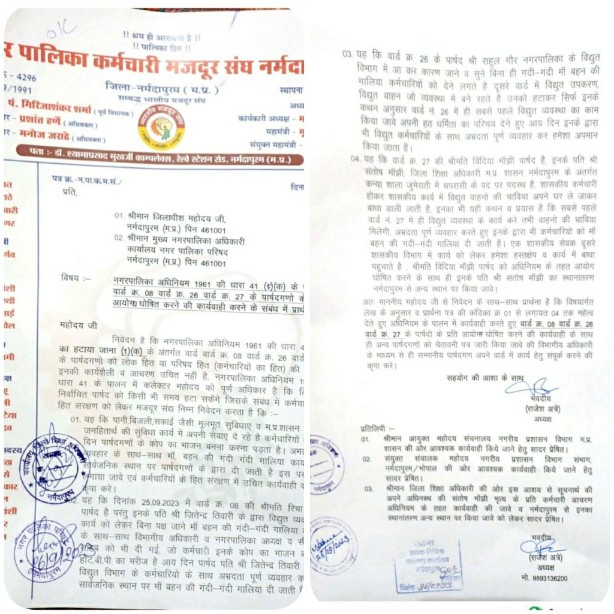 OK
!! श्रम ही आराधना है !!
!! पालिका हित !!
र पालिका कर्मचारी मजदूर संघ नर्मदा
4296
/1991
जिला-नर्मदापुरम (म.प्र.)
सम्बद्ध भारतीय मजदूर संघ
स्थापना
पं. गिरिजाशंकर शर्मा (पूर्व विधायक)
र - प्रशांत हर्णे (अधिवक्ता)
र - मनोज जराठे (अधिवक्ता)
अध्य
कार्यकारी अध्यक्ष - म
महामंत्री -
संयुक्त महामंत्री -
पता :- डॉ. श्यामाप्रसाद मुखर्जी काम्पलेक्स, रेल्वे स्टेशन रोड, नर्मदापुरम (म.प्र.)
पत्र क्र.-न.पा.क.म.सं./
दिना
प्रति,
01. श्रीमान जिलाधीश महोदय जी,
नर्मदापुरम (म.प्र.) पिन 461001
02. श्रीमान मुख्य नगरपालिका अधिकारी
कार्यालय नगर पालिका परिषद
नर्मदापुरम (म.प्र.) पिन 461001
विषय :- नगरपालिका अधिनियम 1961 की धारा 41 (1)(क) के
वार्ड क्र. 08 वार्ड क्र. 26 वार्ड क्र. 27 के पार्षदगणो को
आयोग्य घोषित करने की कार्यवाही करने के संबंध में प्रार्थ
महोदय जी
निवेदन है कि नगरपालिका अधिनियम 1961 की धारा 4
का हटाया जाना (1)(क) के अंतर्गत वार्ड वार्ड क्र. 08 वार्ड क्र. 26 वार्ड
के पार्षदगणों को लोक हित या परिषद हित (कर्मचारियों का हित) की
इनकी कार्यशैली व आधरण उचित नहीं है. नगरपालिका अधिनियम 1
धारा 41 के पालन में कलेक्टर महोदय को पूर्ण अधिकार है कि
निर्वाचित पार्षद को किसी भी समय हटा सकेंगे जिसके संबंध में कर्मचा
हित सरक्षण को लेकर मजदूर संघ निम्न निवेदन करता है कि :-
01. यह कि पानी,बिजली,सफाई जैसी मूलभूत सुविधाए व म.प्र.शासन
जनहितार्थ की सुविधा कार्य में अपनी सेवाए दे रहे है कर्मचारियों
दिन पार्षदगणों के कोप का भाजन बनना करना पड़ता है। अभ
व्यवहार के साथ-साथ माँ, बहन की गंदी गंदी गालिया कार्य
सार्वजनिक स्थान पर पार्षदगणों के द्वारा दी जाती है इस पर
लगाया जावे एवं कर्मचारियों के हित संरक्षण में उचित कार्यवाही क
करे।
यह कि दिनांक 25.09.2023 में वार्ड क्र. 08 की श्रीमति रिचा
पार्षद है परंतु इनके पति श्री जितेन्द्र तिवारी के द्वारा विद्युत व्यव
कार्य को लेकर बिना पक्ष जाने माँ बहन की गंदी-गंदी गालिया
के साथ-साथ विभागीय अधिकारी व नगरपालिका अध्यक्ष व स
को भी दी गई, जो कर्मचारी इनके कोप का भाजन ब
हाट,बी.पी का मरीज है आय दिन पार्षद पति श्री जितेन्द्र तिवारी
विद्युत विभाग के कर्मचारियों के साथ अभद्रता पूर्ण व्यवहार कर
सार्वजनिक स्थान पर माँ बहन की गंदी-गंदी गालिया दी जाती है
03. यह कि वार्ड क्र. 26 के पार्षद श्री राहुल गौर नगरपालिका के विद्युत
विभाग में आ कर कारण जाने व सुने बिना ही गंदी-गंदी माँ बहन की
गालिया कर्मचारियों को देने लगते है दूसरे वार्ड में विद्युत उपकरण,
विद्युत वाहन जो व्यवस्था में बने रहते है उनको हटाकर सिर्फ इनके
कथन अनुसार वार्ड न. 26 में ही सबसे पहले विद्युत व्यवस्था का काम
किया जावे अपनी हठ धर्मिता का परिचय देते हुए आय दिन इनके द्वारा
भी विद्युत कर्मचारी के साथ अभद्रता पूर्ण व्यवहार कर हमेशा अपमान
किया जाता है।
04. यह कि वार्ड क्र. 27 की श्रीमति विंदिया माँझी पार्षद है, इनके पति श्री
संतोष माँझी, जिला शिक्षा अधिकारी म.प्र. शासन नर्मदापुरम के अंतर्गत
कन्या शाला जुमेराती में चपरासी के पद पर पदस्थ है, शासकीय कर्मचारी
होकर शासकीय कार्य में विद्युत वाहन की चाविया अपने घर ले जाकर
बाधा डाली जाती है, इनका भी यही कथन व प्रयास है कि सबसे पहले
वार्ड नं. 27 मे ही विद्युत व्यवस्था के कार्य करे तभी वाहनो की चाविया
मिलेगी, अभद्रता पूर्ण व्यवहार करते हुए इनके द्वारा भी कर्मचारियों को माँ
बहन की गंदी-गंदी गालियां दी जाती है। एक शासकीय सेवक दूसरे
शासकीय विभाग में कार्य को लेकर हमेशा हस्तक्षेप व कार्य में बाधा
पहुचाते है, श्रीमति विंदिया माँझी पार्षद को अधिनियम के तहत आयोग्य
घोषित करने के साथ ही इनके पति श्री संतोष माँझी का स्थानांतरण
नर्मदापुरम से अन्य स्थान पर किया जावे।
अतः माननीय महोदय जी से निवेदन के साथ-साथ प्रार्थना है कि विषयांर्गत
लेख के अनुसार व प्रार्थना पत्र की कंडिका क्र 01 से लगायत 04 तक महेत्व
देते हुए अधिनियम के पालन में कार्यवाही करते हुए वार्ड क्र. 08 वार्ड क्र. 26
वार्ड क्र. 27 के पार्षदो के प्रति आयोग्य घोषित करने की कार्यवाही के साथ
ही अन्य पार्षदगणों को चेतावनी पत्र जारी किया जावे की विभागीय अधिकारी
के माध्यम से ही सम्मानीय पार्षदगण अपने वार्ड में कार्य हेतु संपूर्ण करने की
कृपा करे।
सहयोग की आशा के साथ,
भवदीय
(राजेश अत्रे)
अध्यक्ष
प्रतिलिपी :-
01. श्रीमान आयुक्त महोदय संचनालय नगरीय प्रशासन विभाग म.प्र.
शासन की ओर आवश्यक कार्यवाही किये जाने हेतु सादर प्रेषित।
02. संयुक्त संचालक महोदय नगरीय प्रशासन विभाग संभाग,
नर्मदापुरम/भोपाल की ओर आवश्यक कार्यवाही किये जाने हेतु
सादर प्रेषित।
03. श्रीमान जिला शिक्षा अधिकारी की ओर इस आशय से सूचनार्थ की
आपने अधिनस्थ की संतोष माँझी भृत्य के प्रति कर्मचारी आचरण
अधिनियम के तहत कार्यवाही की जावे व नर्मदापुरम से इनका
स्थानांतरण अन्य स्थान पर किया जावे को लेकर सादर प्रेषित।
भवदीय
(राजेश अत्रे)
अध्यक्ष
मो. 9893136200